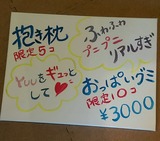 抱き枕
限定5コ
ふわふわ
プニプニ
リアルすぎ
YUUをギュッと
して
おっぱいグミ
限定10コ
¥3000